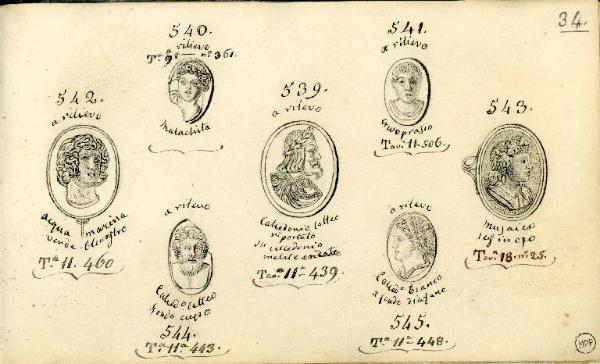 34.
540.
a rilievo
T.ª 9ª nº 361.
Malachita
541.
a rilievo
Crisoprasio
Tav. 11. 506.
542.
a rilievo
acqua marina
verde bluastro
T.ª 11. 460
539.
a rilievo
Calcedonio latteo
riportato
su calcedonio
Tav. 11ª 439.
543.
Musaico
leg. in oro
Tav. 18. nº 25.
a rilievo
Calced.º latteo
fondo cupo
544.
T.ª 11ª 443.
a rilievo
Calced.º bianco
a fondo diafano
545.
T.ª 11ª 448.
MPF